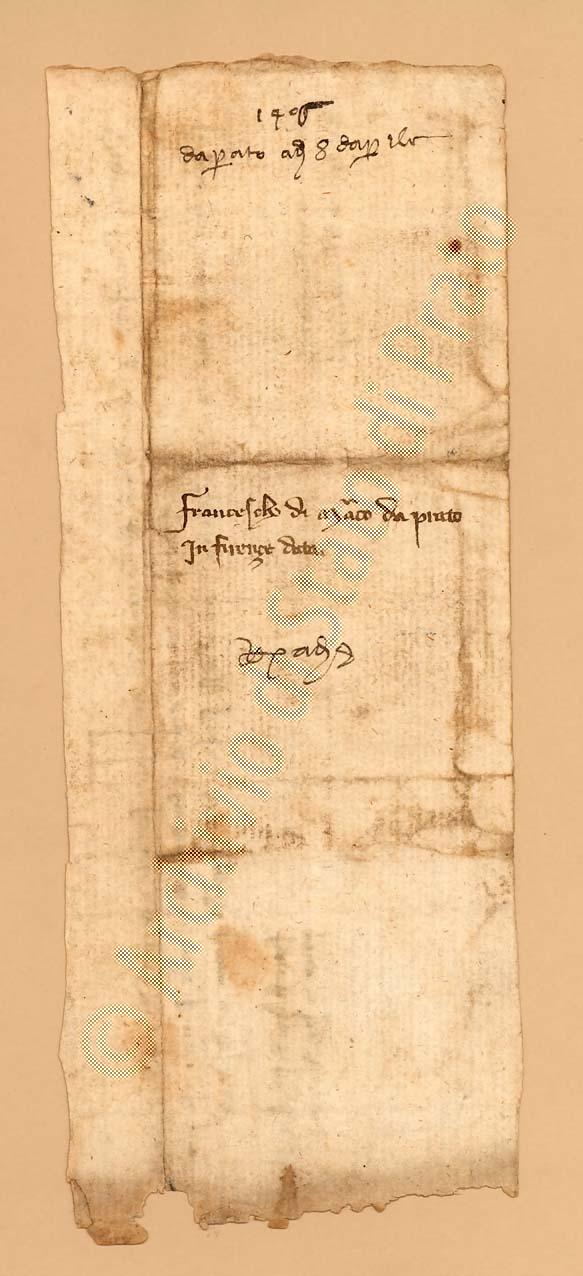 1406
da prato adj 8 daprile
Francescho di marco da prato
In firenze data.
© Archivio di Stato di Prato